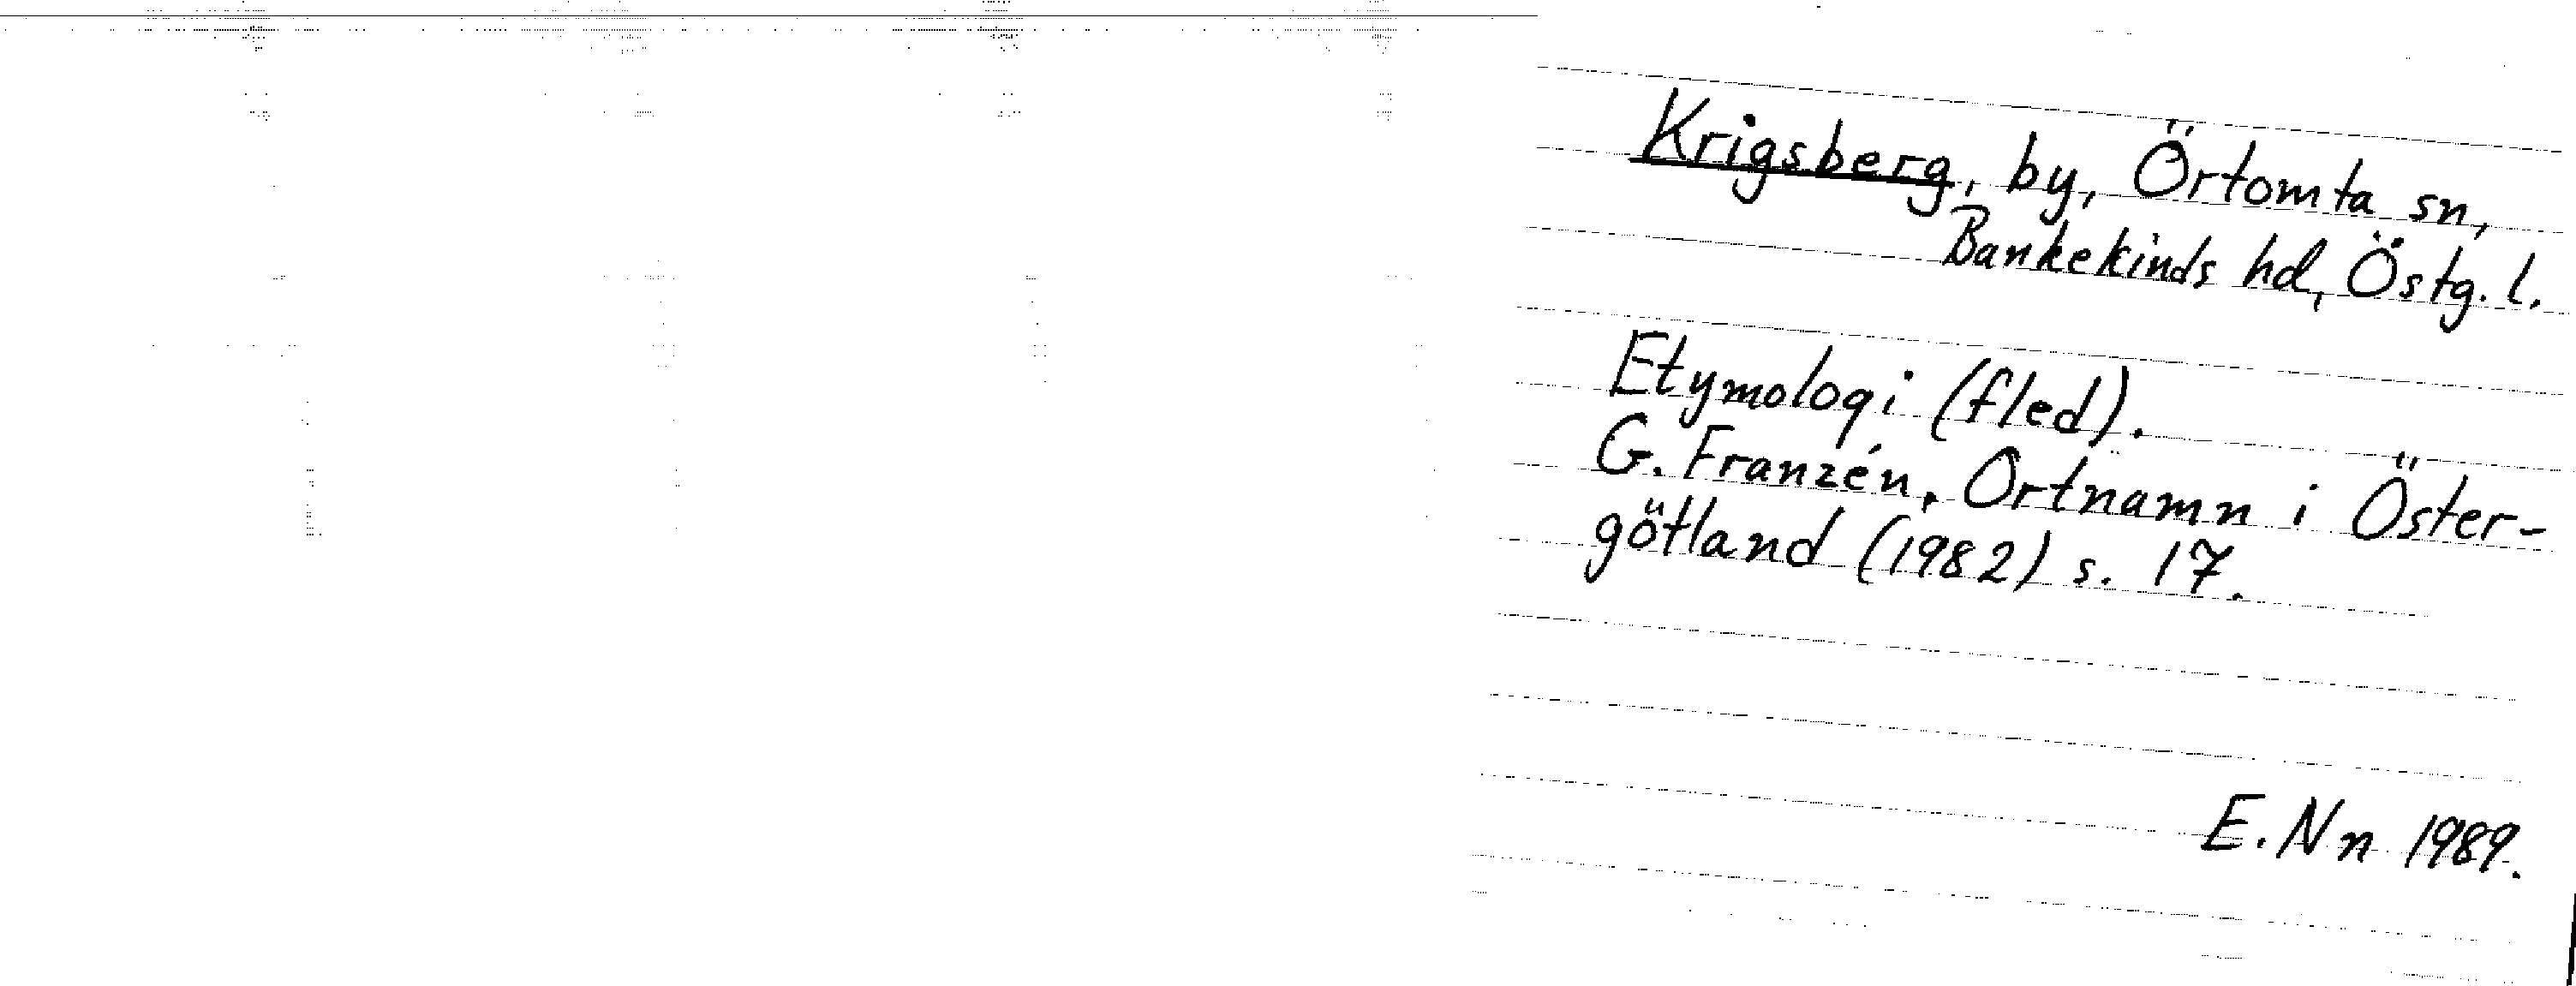 Krigsberg, by, Örtomta sn,
Bankekinds hd, Östg. l.
Etymologi (fled).
G. Franzén, Ortnamn i Öster-
götland (1982) s. 17.
E. Nn 1989.